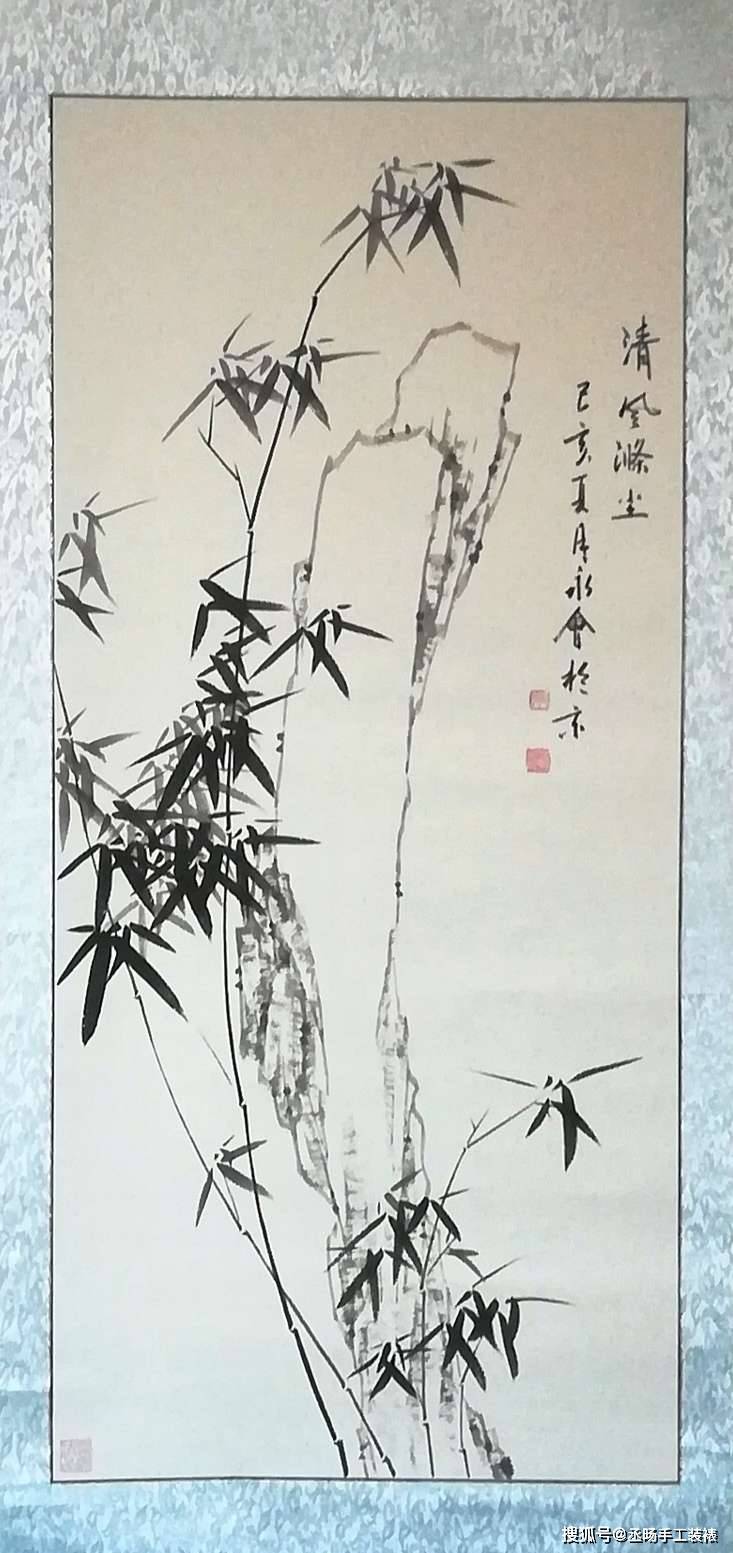 清风滌尘
己亥夏月永會於京
搜狐号@丞旸手工装裱